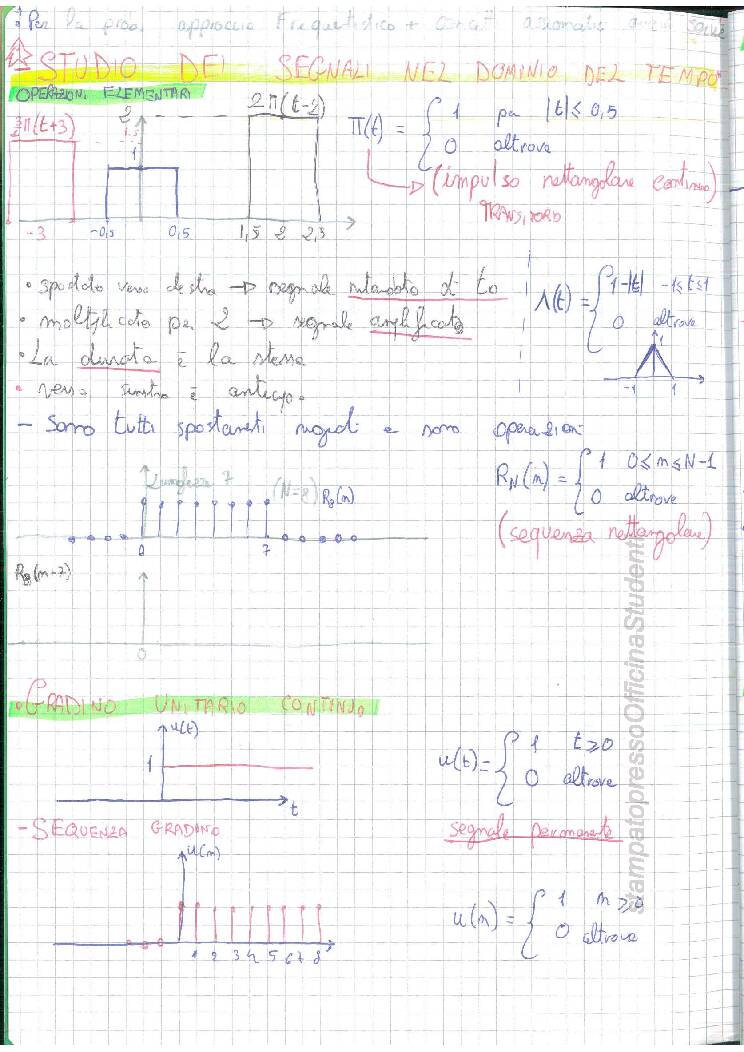 Per la prob. approccio Frequentistico +
STUDIO DEI SEGNALI NEL DOMINIO DEL TEMPO
OPERAZIONI ELEMENTARI
3/2 π(t+3)
2
1.5
1
2π(t-2)
-3 -0,5 0,5 1,5 2 2,5
π(t) = { 1 per |t| ≤ 0,5
0 altrove
(impulso rettangolare continuo)
TRANSITORIO
• spostato verso destra → segnale ritardato di to
• moltiplicato per 2 → segnale amplificato
• La durata è la stessa
• verso sinistra è anticipo.
Λ(t) = { 1-|t| -1≤t≤1
0 altrove
1
-1 1
- Sono tutti spostamenti rigidi e sono operazioni
Lunghezza 7
(N=8) R8(n)
0 7
RN(n) = { 1 0≤n≤N-1
0 altrove
(sequenza rettangolare)
R8(n-7)
0
• GRADINO UNITARIO CONTINUO
u(t)
1
t
u(t) = { 1 t≥0
0 altrove
segnale permanente
- SEQUENZA GRADINO
u(n)
1 2 3 4 5 6 7 8
u(n) = { 1 n≥0
0 altrove
StampatopressoOfficinaStudenti